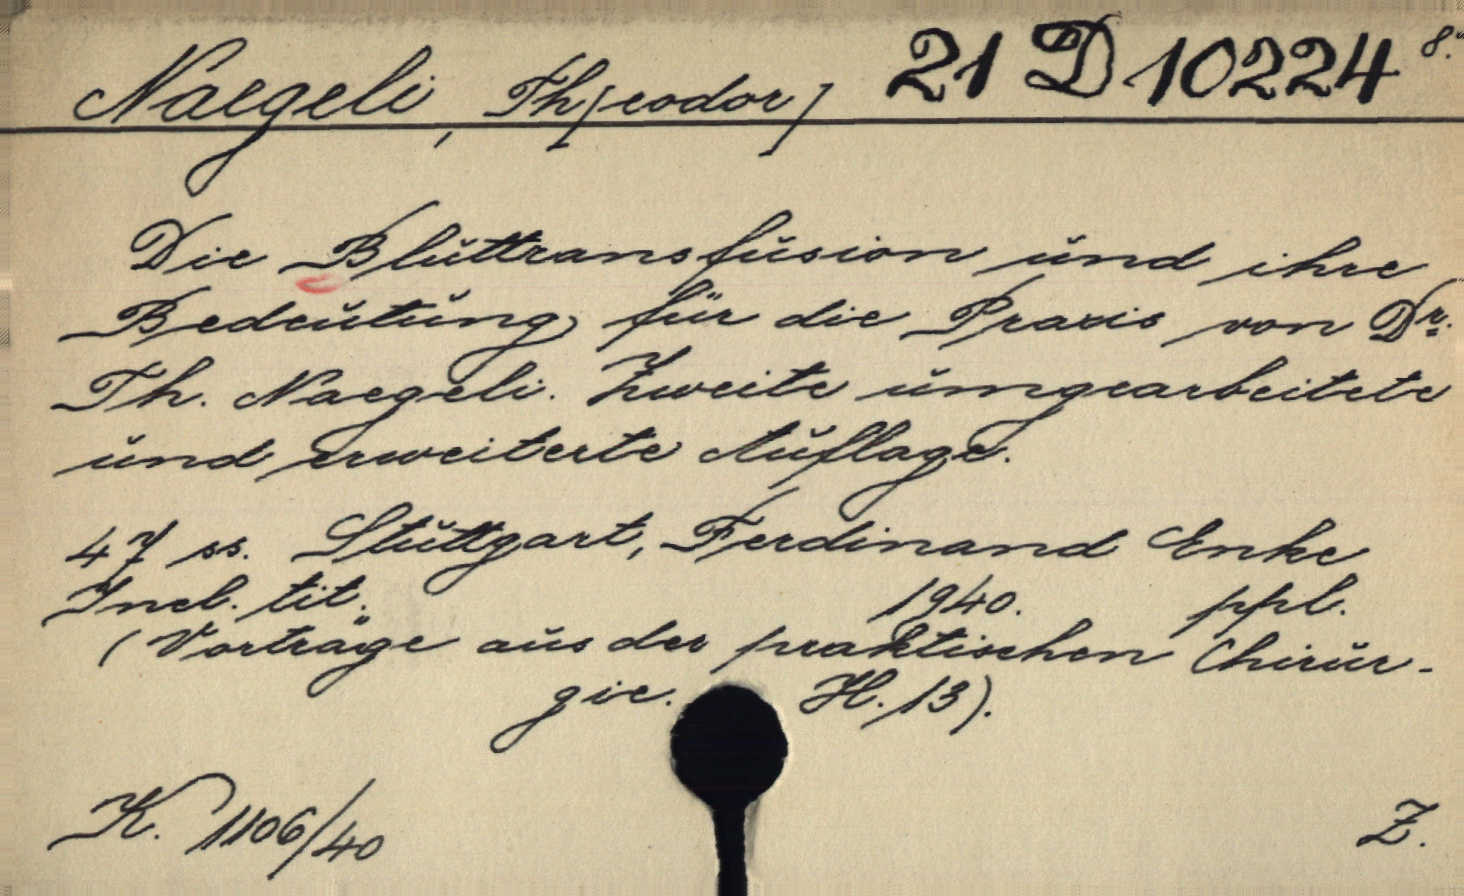 Naegeli, Th[eodor] 21 D 10224 8.°
Die Bluttransfusion und ihre
Bedeutung für die Praxis von Dr.
Th. Naegeli. Zweite umgearbeitete
und erweiterte Auflage.
47 ss. Stuttgart, Ferdinand Enke
Incl. tit. 1940. ppl.
(Vorträge aus der praktischen Chirur-
gie. H. 13).
K. 1106/40 Z.